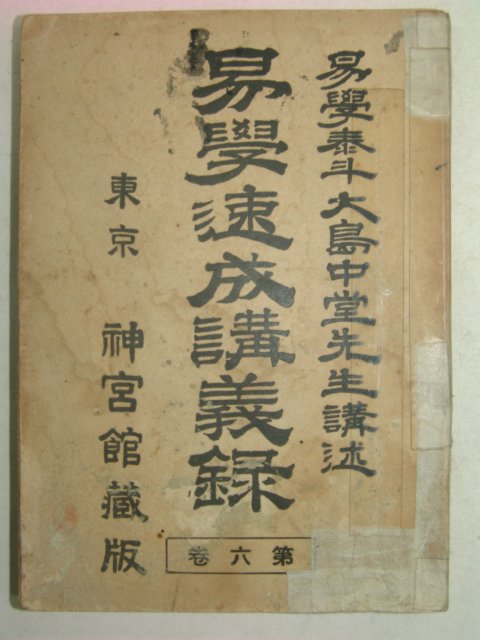 易學泰斗大島中堂先生講述
易學速成講義録
第六卷
東京 神宮館藏版